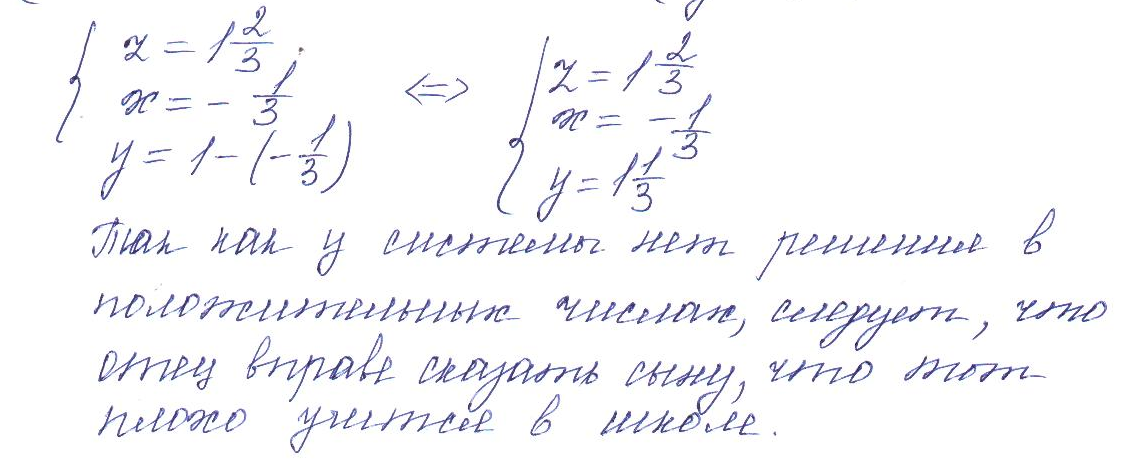 z = 1 2/3
x = - 1/3
y = 1 - (- 1/3)
<=>
z = 1 2/3
x = - 1/3
y = 1 1/3
Так как у системы нет решения в
положительных числах, следует, что
отец вправе сказать сыну, что тот
плохо учится в школе.